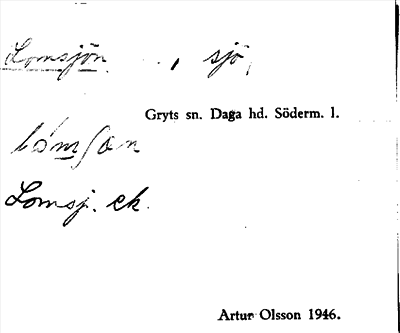 Lomsjön , sjö,
Gryts sn. Daga hd. Söderm. l.
Lomsj. ek.
Artur Olsson 1946.